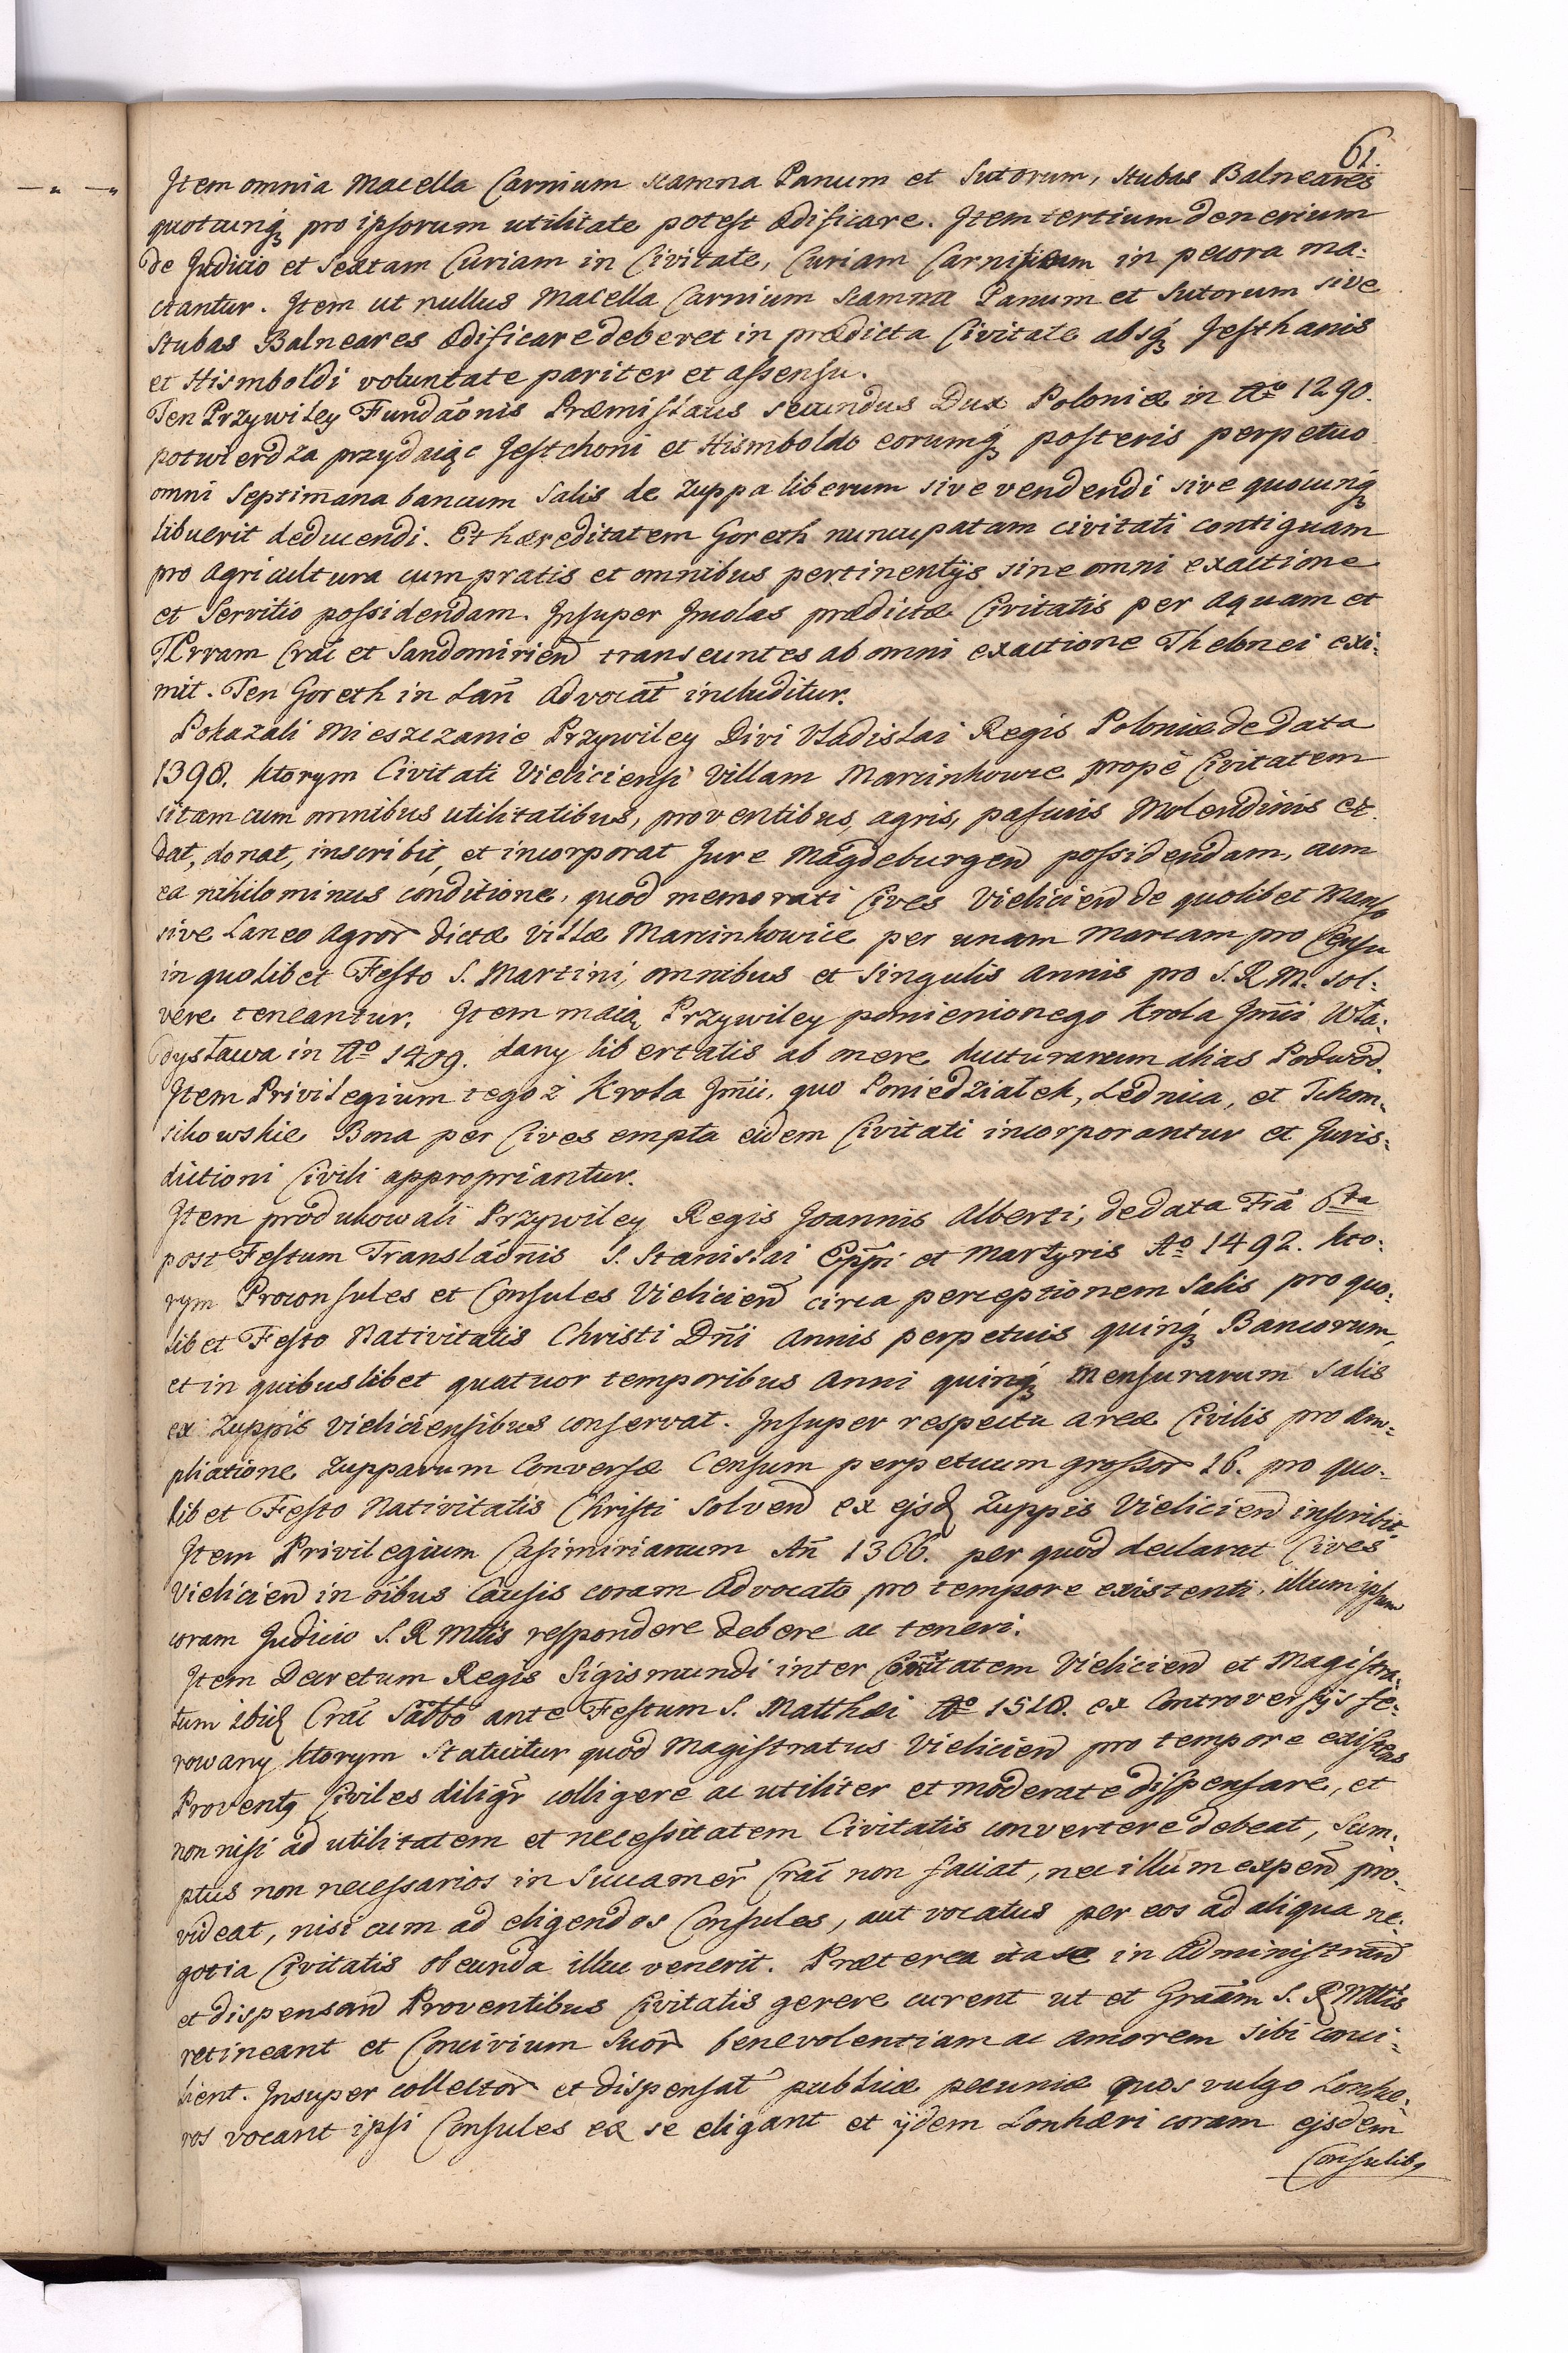 61.
Item omnia Macella Carnium scamna Panum et Sutorum, stubas Balneares
quotcunq₃ pro ipsorum utilitate potest ædificare. Item tertium denerium
de Judicio et Sextam Curiam in Civitate, Curiam Carnificum in pecora ma:
ctantur. Item ut nullus Macella Carnium Scamna Panum et Sutorum sive
Stubas Balneares ædificare deberet in prædicta Civitate absq₃ Jesthanis
et Hismboldi voluntate pariter et assensu.
Ten Przywiley Fundãonis Præmislaus secundus Dux Poloniæ in Aº 1290.
potwierdza przydaiąc Jestchoni et Hismboldo eorumq₃ posteris perpetuo
omni Septim̃ana bancum Salis de Zuppa liberum sive vendendi sive quocunq₃
libuerit deducendi. Et hæreditatem Goreth nuncupatam civitati contiguam
pro agricultura cum pratis et omnibus pertinentijs sine omni exactione
et Servitio possidendam. Insuper Incolas prædictæ Civitatis per aquam et
Terram Crač et Sandomirien̄ transeuntes ab omni exactione Thelonei exi:
mit. Ten Goreth in Lan̄ advocat̄ includitur.
Pokazali Mieszczanie Przywiley Divi Vladislai Regis Poloniæ de data
1398. ktorym Civitati Vieliciensi Villam Marcinkowice propè Civitatem
sitam cum omnibus utilitatibus, proventibus, agris, pascuis Molendinis et
dat, donat, inscribit, et incorporat Jure Magdeburgen̄ possidendam, cum
ea nihilominus conditione, quod memorati Cives Vielicien̄ de quolibet Manso
sive Laneo Agror̄ dictæ Villæ Marcinkowice per unam marcam pro Censu
in quolibet Festo S. Martini, omnibus et singulis annis pro S.R.M. sol:
vere teneantur. Item maią Przywiley pomienionego Krola Jm̄ci Wła:
dysława in Aº 1409. dany libertatis ab onere ducturarum alias Podwod.
Item Privilegium tegoż Krola Jm̄ci, quo Poniedziałek, Lednica, et Tchom:
sikowskie Bona per Cives empta eidem Civitati incorporantur et Juris:
dictioni Civili appropriantur.
Item produkowali Przywiley Regis Joannis Alberti, de data Fr̄a 6ta
post Festum Translãonis S. Stanislai Ep̄pi et Martyris Aº 1492. kto:
rym Proconsules et Consules Vielicien̄ circa perceptionem Salis pro quo:
libet Festo Nativitatis Christi Dn̄i Annis perpetuis quinq₃ Bancorum,
et in quibuslibet quatuor temporibus Anni quinq₃ Mensurarum Salis
ex Zuppis Vieliciensibus conservat. Insuper respectu areæ Civilis pro am=
pliatione Zupparum Conversæ Censum perpetuum grossor̄ 16. pro quo:
libet Festo Nativitatis Christi Solven̄ ex ejsd Zuppis Vielicien̄ inscribit.
Item Privilegium Casimirianum An̄ 1366. per quod declarat Cives
Vielicien̄ in oībus Causis coram Advocato pro tempore existenti, illum ipsum
coram Judicio S.R Mttis respondere debere ac teneri.
Item Decretum Regis Sigismundi inter Com̄itatem Vielicien̄ et Magistra:
tum ibid Crač Sabbo ante Festum S. Matthæi Aº 1518. ex Controversijs fe:
rowany ktorym statuitur quod Magistratus Vielicien̄ pro tempore existens
Proventq Civiles diligr̄ colligere ac utiliter et moderate dispensare, et
non nisi ad utilitatem et necessitatem Civitatis convertere debeat, Sum:
ptus non necessarios in Succamer̄ Crač non faciat, nec illum expen̄ pro:
videat, nisi cum ad eligendos Consules, aut vocatus per eos ad aliqua ne:
gotia Civitatis obeunda illuc venerit. Præterea ita se in Administran̄
et dispensan̄ Proventibus Civitatis gerere curent ut et Grãam S. R Mttis
retineant et Concivium Suor̄ benevolentiam ac amorem sibi conci:
lient. Insuper collector̄ et dispensat̄ publicæ pecuniæ quos vulgo Lonhe:
ros vocant ipsi Consules ex se eligant et ijdem Lonhæri coram ejsdem
Consulibq